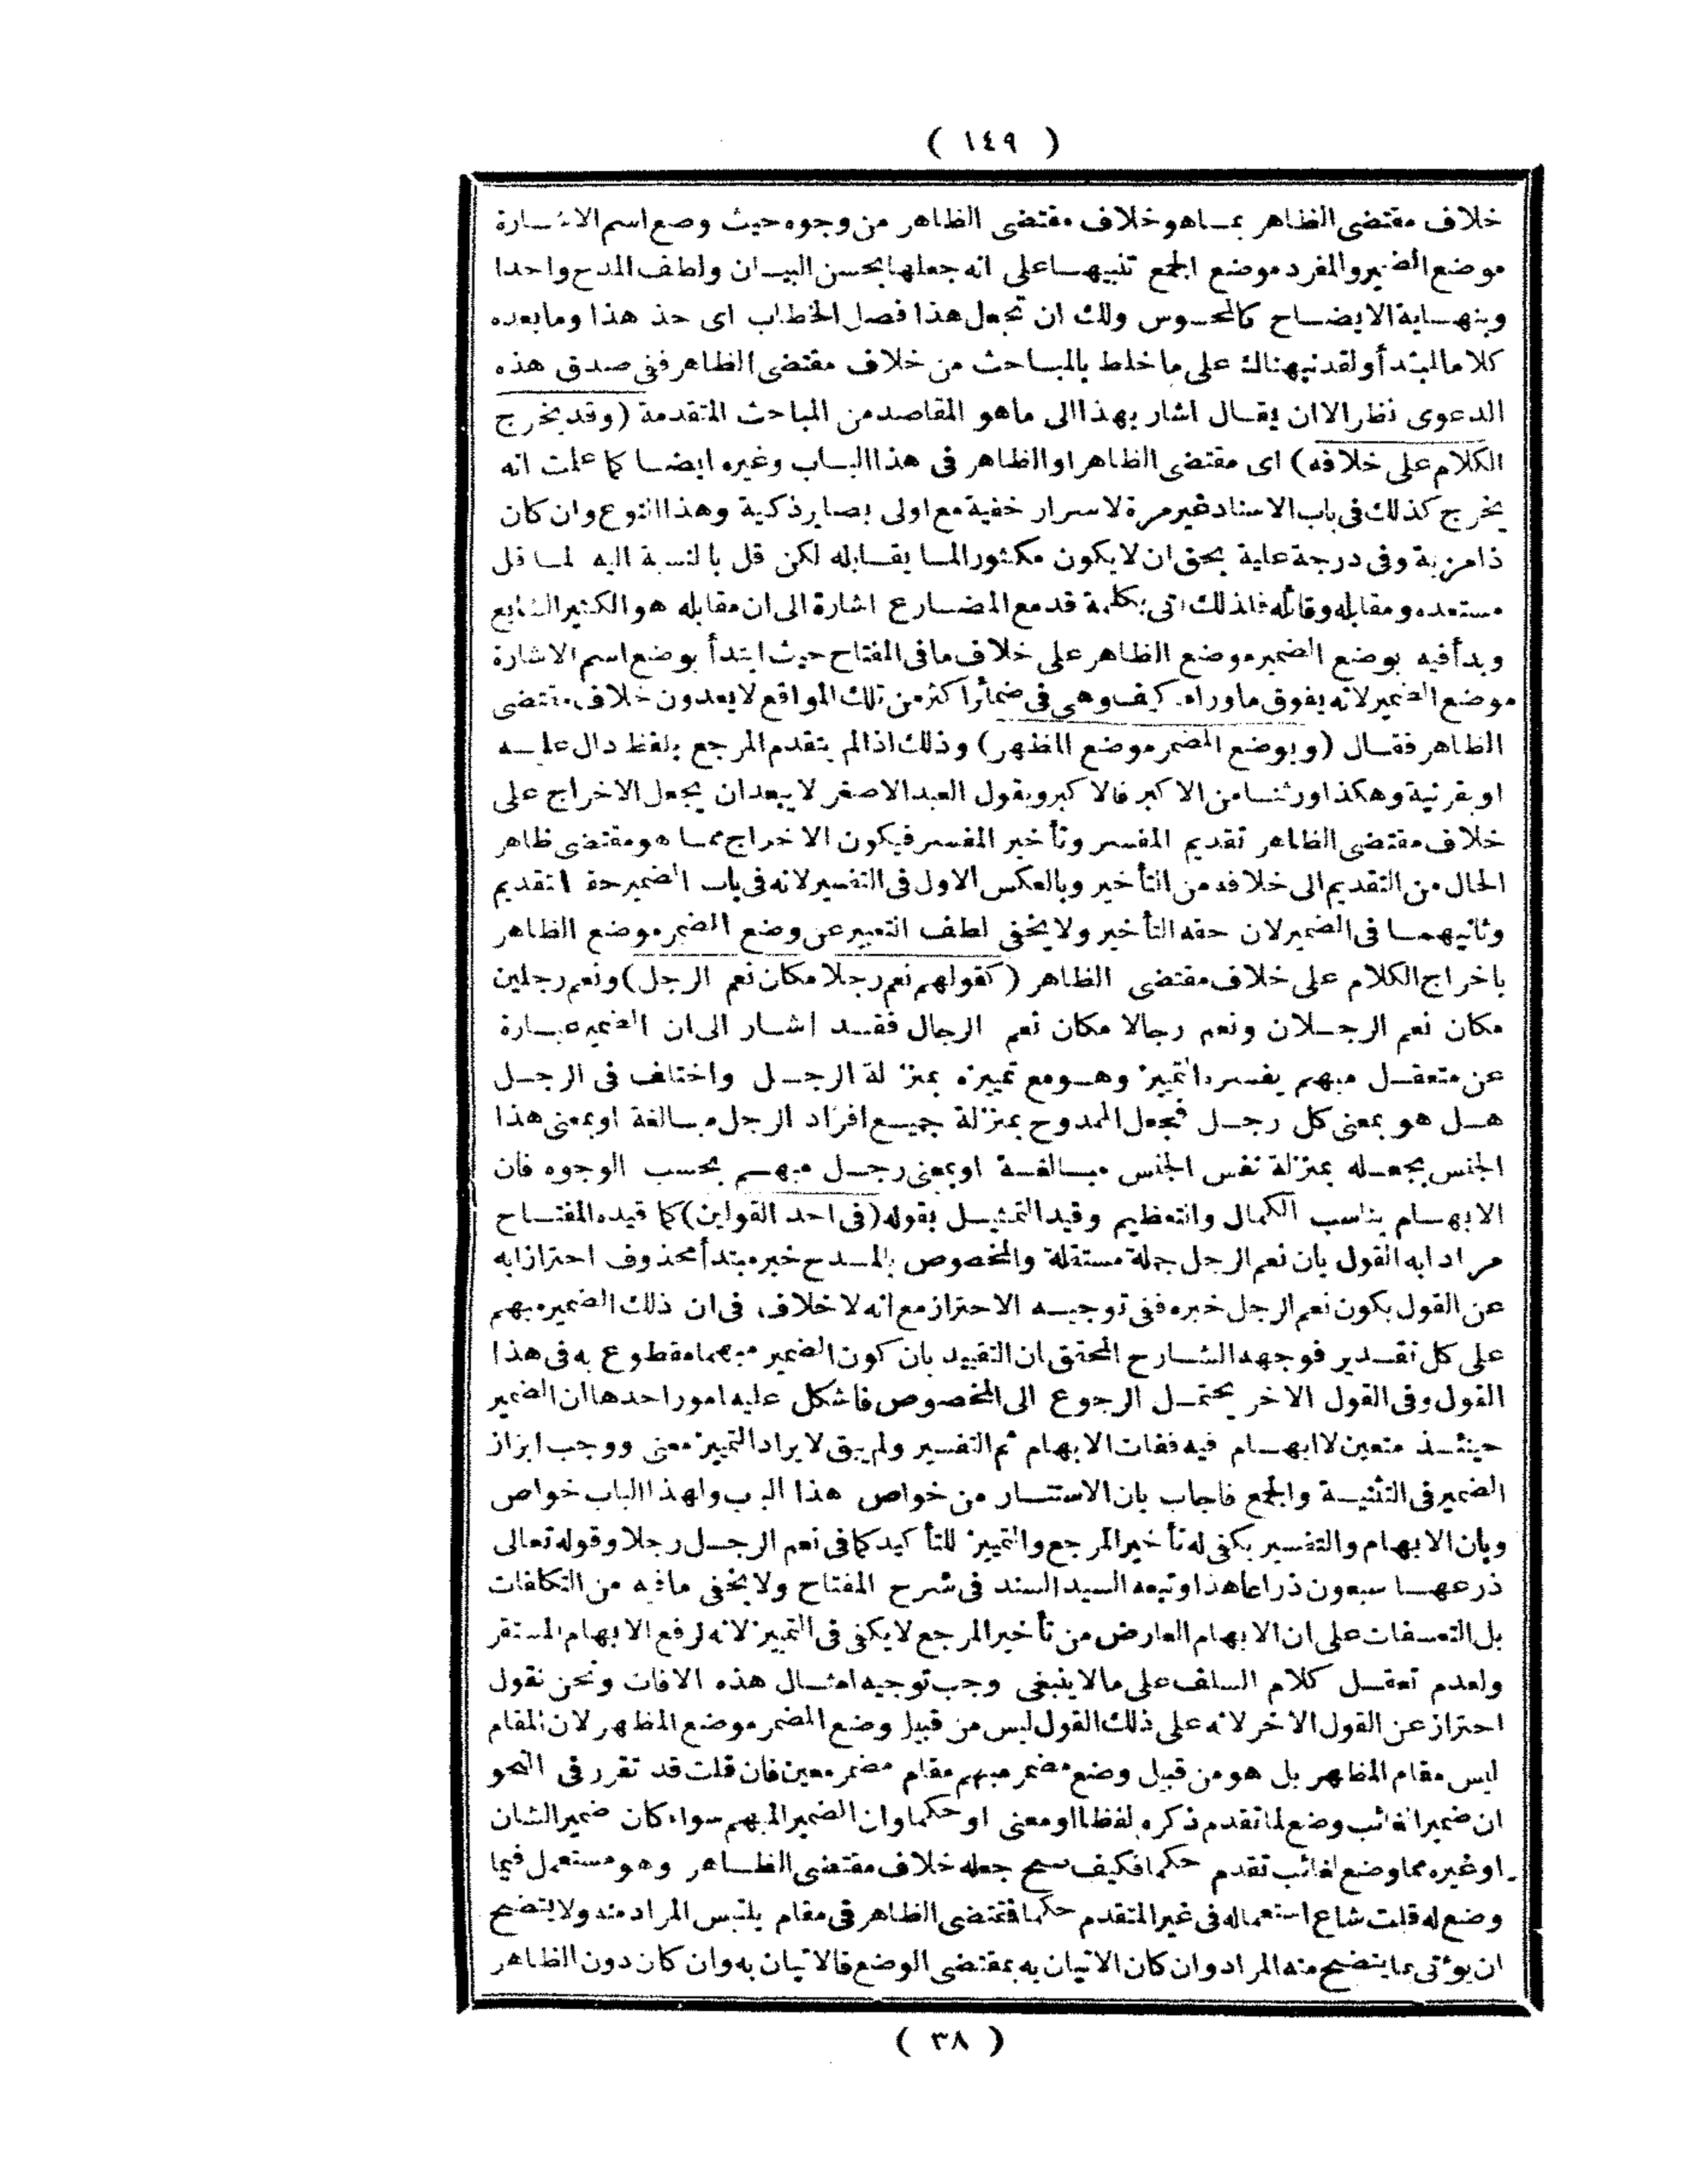 ( ١٤٩ )
خلاف مقتضى الظاهر بما هو خلاف مقتضى الظاهر من وجوه حيث وضع اسم الاشارة
موضع الضمير والمفرد موضع الجمع تنبيها على انه جعلها بحسن البيان ولطف المدح واحدا
وبنهاية الايضاح كالمحسوس ولك ان تجعل هذا فصل الخطاب اى خذ هذا وما بعده
كلاما مبتدأ ولقد نبهناك على ما خلط بالمباحث من خلاف مقتضى الظاهر ففى صدق هذه
الدعوى نظر الا ان يقال اشار بهذا الى ما هو المقاصد من المباحث المتقدمة (وقد يخرج
الكلام على خلافه) اى مقتضى الظاهر او الظاهر فى هذا الباب وغيره ايضا كما علمت انه
يخرج كذلك فى باب الاسناد غير مرة لاسرار خفية مع اولى بصاير ذكية وهذا النوع وان كان
ذا مزية وفى درجة علية بحق ان لا يكون مكثورا لما يقابله لكن قل بالنسبة اليه لما قل
مستعده ومقابله وقائله فلذلك اتى بكلمة قد مع المضارع اشارة الى ان مقابله هو الكثير الشايع
وبدأ فيه بوضع الضمير موضع الظاهر على خلاف ما فى المفتاح حيث ابتدأ بوضع اسم الاشارة
موضع الضمير لانه يفوق ما وراءه كيف وهى فى ضمائر اكثر من تلك المواقع لا يعدون خلاف مقتضى
الظاهر فقال (وبوضع المضمر موضع المظهر) وذلك اذا لم يتقدم المرجع بلفظ دال عليه
او بقرنية وهكذا ورثنا من الاكبر فالاكبر ويقول العبد الاصغر لا يبعد ان يجعل الاخراج على
خلاف مقتضى الظاهر تقديم المفسر وتأخير المفسر فيكون الاخراج مما هو مقتضى ظاهر
الحال من التقديم الى خلافه من التأخير وبالعكس الاول فى التفسير لانه فى باب الضمير حقه التقديم
وثانيهما فى الضمير لان حقه التأخير ولا يخفى لطف التعبير عن وضع المضمر موضع الظاهر
باخراج الكلام على خلاف مقتضى الظاهر (كقولهم نعم رجلا مكان نعم الرجل) ونعم رجلين
مكان نعم الرجلان ونعم رجالا مكان نعم الرجال فقد اشار الى ان الضمير عبارة
عن متعقل مبهم يفسره التمييز وهو مع تمييزه بمنزلة الرجل واختلف فى الرجل
هل هو بمعنى كل رجل فجعل الممدوح بمنزلة جميع افراد الرجل مبالغة او بمعنى هذا
الجنس بجعله بمنزلة نفس الجنس مبالغة او بمعنى رجل مبهم بحسب الوجوه فان
الابهام يناسب الكمال والتعظيم وقيد التمثيل بقوله (فى احد القولين) كما قيده المفتاح
مرادا به القول بان نعم الرجل جملة مستقلة والمخصوص بالمدح خبر مبتدأ محذوف احترازا به
عن القول بكون نعم الرجل خبره ففى توجيه الاحتراز مع انه لا خلاف فى ان ذلك الضمير مبهم
على كل تقدير فوجهه الشارح المحقق ان التقييد بان كون الضمير مبهما مقطوع به فى هذا
القول وفى القول الاخر يحتمل الرجوع الى المخصوص فاشكل عليه امور احدها ان الضمير
حينئذ متعين لا ابهام فيه ففات الابهام ثم التفسير ولم يبق لايراد التمييز معنى ووجب ابراز
الضمير فى التثنية والجمع فاجاب بان الاستتار من خواص هذا الباب ولهذا الباب خواص
وبان الابهام والتفسير يكفى له تأخير المرجع والتمييز للتأكيد كما فى نعم الرجل رجلا وقوله تعالى
ذرعها سبعون ذراعا هذا وتبعه السيد السند فى شرح المفتاح ولا يخفى ما فيه من التكلفات
بل التعسفات على ان الابهام العارض من تأخير المرجع لا يكفى فى التمييز لانه لرفع الابهام المستقر
ولعدم تعقل كلام السلف على ما لا ينبغى وجب توجيه امثال هذه الافات ونحن نقول
احتراز عن القول الاخر لانه على ذلك القول ليس من قبيل وضع المضمر موضع المظهر لان المقام
ليس مقام المظهر بل هو من قبيل وضع مضمر مبهم مقام مضمر معين فان قلت قد تقرر فى النحو
ان ضمير الغائب وضع لما تقدم ذكره لفظا او معنى او حكما وان الضمير المبهم سواء كان ضمير الشان
او غيره مما وضع لغائب تقدم حكما فكيف صح جعله خلاف مقتضى الظاهر وهو مستعمل فيما
وضع له قلت شاع استعماله فى غير المتقدم حكما فمقتضى الظاهر فى مقام يلتبس المراد منه ولا يتضح
ان يؤتى بما يتضح منه المراد وان كان الاتيان به بمقتضى الوضع فالاتيان به وان كان دون الظاهر
( ٣٨ )